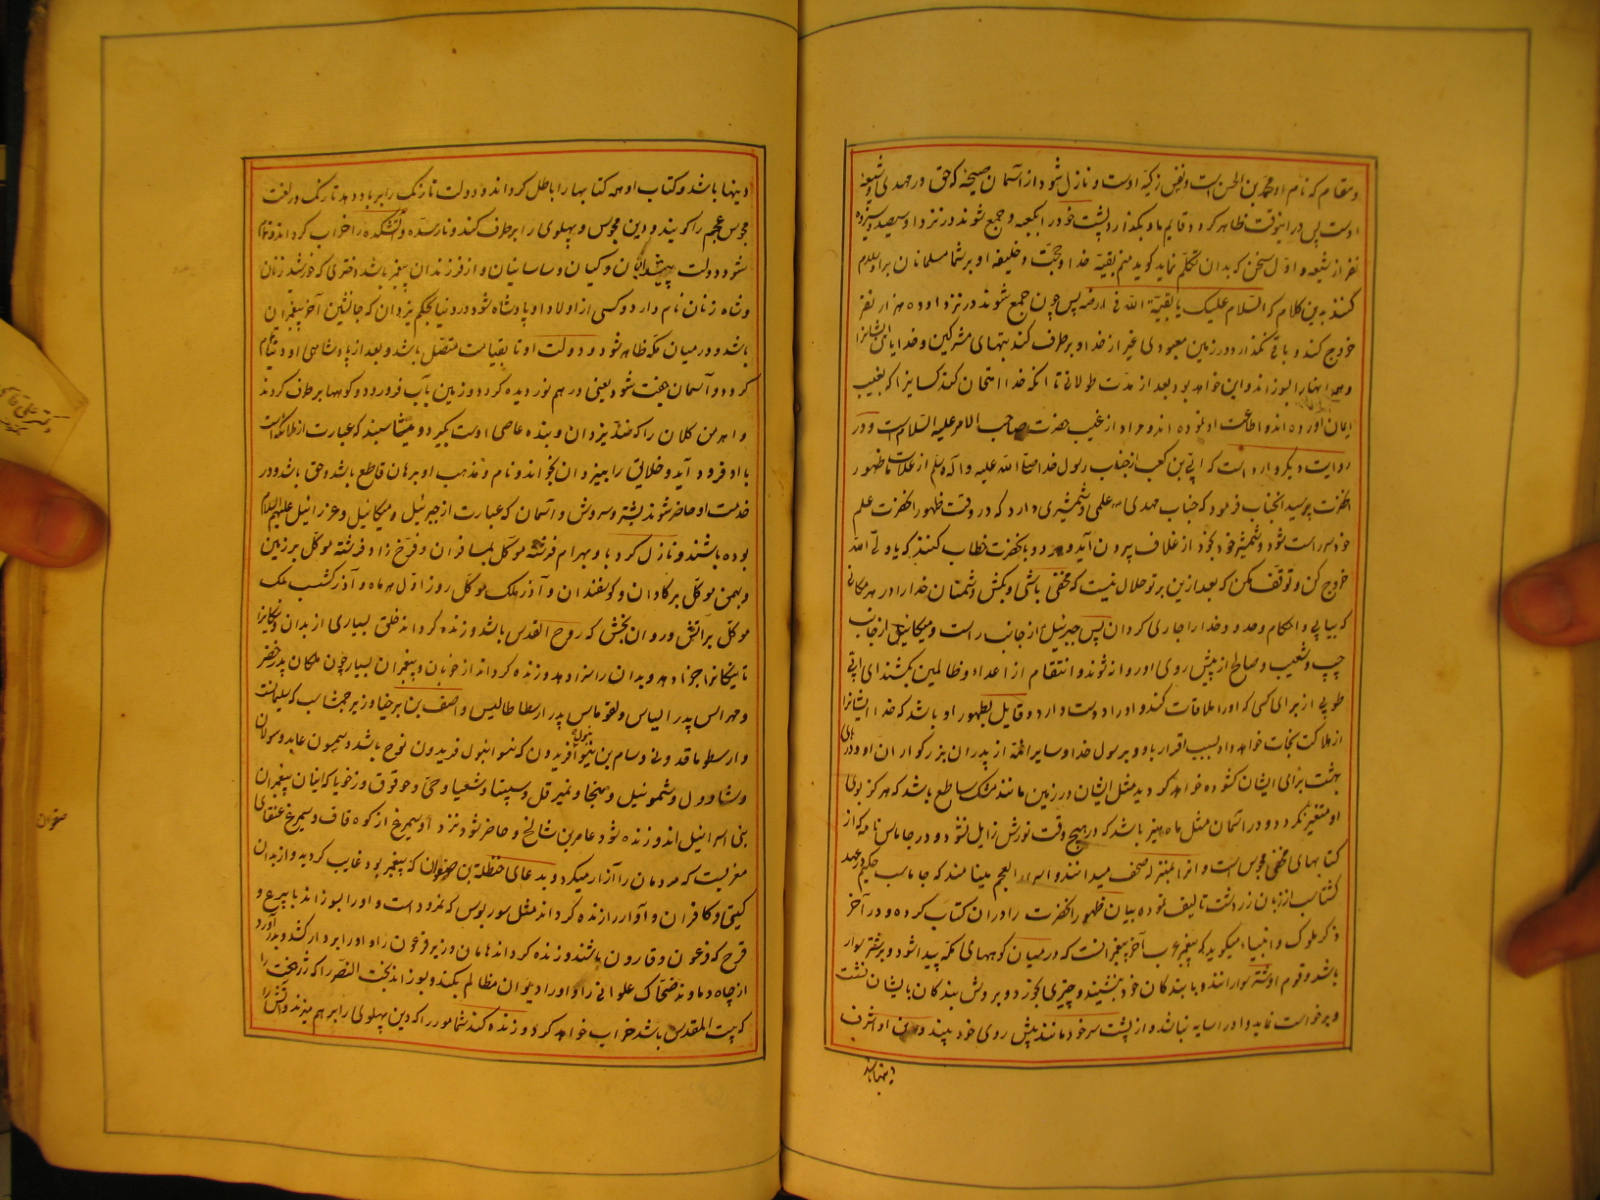 و مقام که نام او محمد بن الحسن است و نفس زکیه اوست و نازل شود از آسمان صیحهٔ که حق در مهدی و شیعهٔ
اوست پس در اینوقت ظاهر کردد قایم ما و بکذارد پشت خود را بکعبه و جمع شوند در نزد او سیصد و سیزده
نفر از شیعه و اول سخن که بدان تکلم نماید کوید منم بقیّة خدا و حجّت و خلیفه او بر شما مسلمانان براو سلام
کنند به ین کلام که السّلام علیک یا بقیّة اللّه فی ارضه پس چون جمع شوند در نزد او ده هزار نفر
خروج کند و باقی نکذارد در زمین معبودی غیر از خدا و برطرف کند بتهای مشرکین و خدایان ایشانرا
و همه اینها را بسوزاند و این خواهد بود بعد از مدّت طولانی تا انکه خدا امتحان کند کسانیرا که بغیب
ایمان اورده اند و اطاعت او نموده اند و مراد از غیب حضرت صاحب الامر علیه السّلام است و در
روایت دیکر وارد است که ابیّ بن کعب از جناب رسول خدا صلّی اللّه علیه و اله و سلّم از علامات ظهور
انحضرت پرسید انجناب فرمود که جناب مهدی را علمی و شمشیری دارد که در وقت ظهور انحضرت علم
خود بخود راست شود و شمشیر خود بخود از غلاف بیرون آید و هر دو بانحضرت خطاب کنند که یا ولیّ اللّه
خروج کن و توقّف مکن که بعد ازین بر تو حلال نیست که مخفی باشی و بکش دشمنان خدا را در هر مکانی
که بیابی و احکام و حدود خدا را جاری کردان پس جبرئیل از جانب راست و میکائیل از جانب
چپ و شعیب و صالح از پیش روی او روانه شوند و انتقام از اعداء و ظالمین بکشند ای ابیّ
طوبی از برای کسی که او را ملاقات کند و او را دوست دارد و قایل بظهور او باشد که خدا ایشانرا
از هلاکت نجات خواهد داد بسبب اقرار باو و برسول خدا و سایر ائمّه از پدران بزرکوار ان او و درهای
بهشت برای ایشان کشوده خواهد کردید مثل ایشان در زمین مانند مشک ساطع باشد که هرکز بوی
او متغیر نکردد و در آسمان مثل ماه منیر باشد که در هیچ وقت نورش زایل نشود و در جاماسب نامه که از
کتابهای مخفی مجوس است و انرا بمنزلهٔ صحف میدانند و اسرار العجم مینامند که جاماسب حکیم در عهد
کشتاسب از زبان زردشت تالیف نموده بیان ظهور انحضرت را در ان کتاب کرده و در آخر
ذکر ملوک و انبیاء میکوید که پیغمبر عرب آخر پیغمبرانست که در میان کوههای مکّه پیدا شود و بر شتر سوار
باشد و قوم او شتر سوارانند و با بندکان خود بنشیند و چیزی بخورد و بروش بندکان بایشان نشست
و برخواست نماید و او را سایه نباشد و از پشت سر خود مانند پیش روی خود بیند و دین او اشرف
دینها باشد
دینها باشد و کتاب او همه کتابها را باطل کرداند و دولت تازیک را بر باد دهد تازیک در لغت
مجوس عجم را کویند و دین مجوس و پهلوی را برطرف کند و نار سده و آتشکده را خراب کرداند و تمام
شود دولت پیشدادیان و کیان و ساسانیان و از فرزندان پیغمبر باشد دختری که خورشید زنان
و شاه زنان نام دارد و کسی از اولاد او پادشاه شود در دنیا بحکم یزدان که جانشین آخر پیغمبران
باشد و در میان مکّه ظاهر شود و دولت او تا بقیامت متصّل باشد و بعد از پادشاهی او دنیا تمام
کردد و آسمان جفت شود یعنی در هم نوردیده کردد و زمین بآب فرو رود و کوهها برطرف کردند
و اهرمن کلان را که ضدّ یزدان و بنده عاصی اوست بکیرد و
با او فرود آید و خلایق را بیزدان بخواند و نام و مذهب او برهان قاطع باشد و حق باشد و در
خدمت او حاضر شوند بشتر و سروش و آسمان که عبارت از جبرئیل و میکائیل و عزرائیل علیهم السّلام
بوده باشند و نازل کردد باو بهرام فرشته موکّل بمسافران و فرّخ زاد فرشته موکّل بر زمین
و بهمن موکّل بر کاوان و کوسفندان و آذر ملک موکّل روز اوّل هر ماه و آذر کشسب ملک
موکّل بر آتش و روان بخش که روح القدس باشد و زنده کرداند خلق بسیاری از بدان و نیکانرا
تا نیکانرا جزا دهد و بدان را سزا دهد و زنده کرداند از خوبان و پیغمبران بسیار چون ملکان پدر خضر
و مهراس پدر الیاس و لقوماس پدر ارسطاطالیس و اصف بن برخیا وزیر جمشاسب که سلیمانست
و ارسطو ماقدونی و سام بن افریدون که نوح باشد و سمیون عابد و سولان
و شاوول و شموئیل و و و حوقوق و زخویا که اینان پیغمبران
بنی اسرائیل اند و زنده شود عامر بن شالخ و حاضر شود نزد او سیمرغ از کوه قاف و سیمرغ عنقای
مغربیست که مردمان را آزار میکرد و بدعای حنظلة بن صفوان که پیغمبر بود غایب کردید و از بدان
کیتی و کافران و آوار را زنده کرداند مثل سوربوس که نمرود است و او را بسوزاند با پیرع و
قرح که فرعون و قارون باشند و زنده کرداند هامان وزیر فرعون را و او را بر دار کشد و بدر آورد
از چاه دماوند ضحّاک علوانی را و او را دیوان مظالم بکند و بسوزاند بخت النّصر را که
که بیت المقدس باشد خراب خواهد کرد و زنده کند شمامور را که دین پهلوی را بر هم میزند و آتش را
صفوان